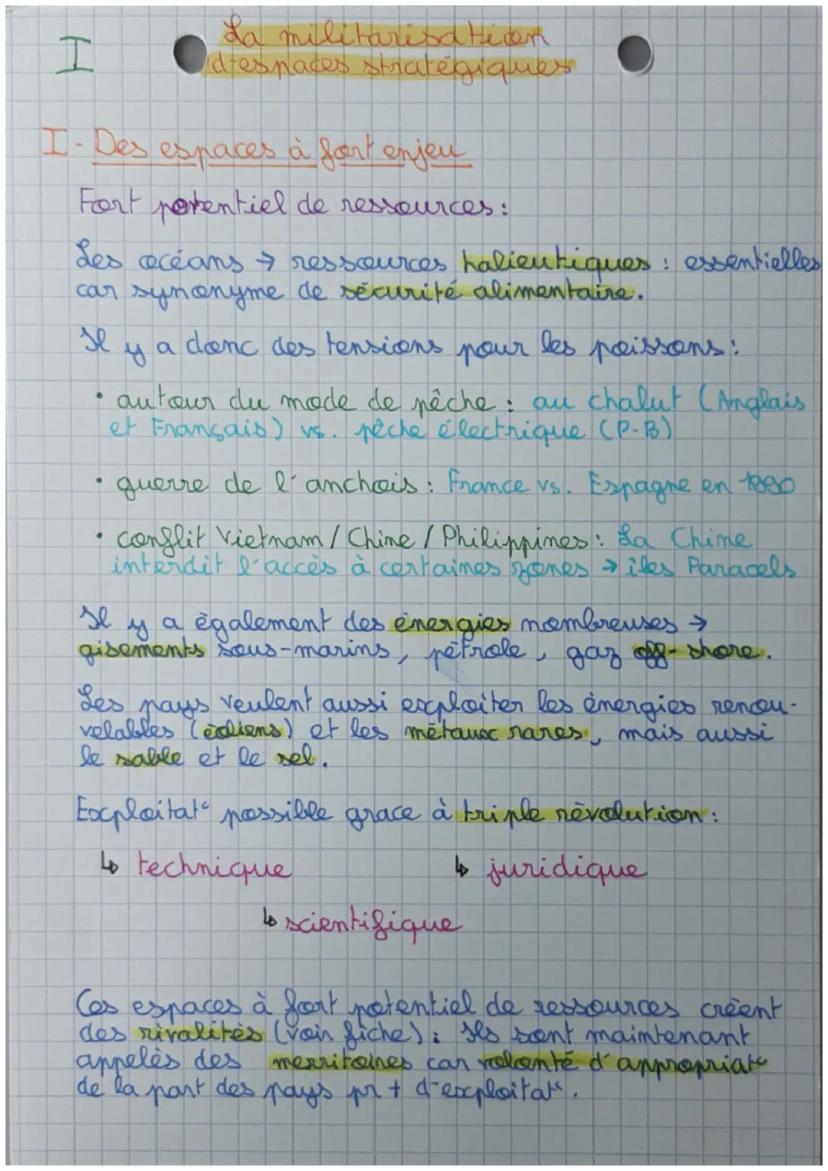 I
La militarisation
d'espaces stratégiques
I - Des espaces à fort enjeu
Fort potentiel de ressources :
Les océans → ressources halieutiques : essentielles
car synonyme de sécurité alimentaire.
Il y a donc des tensions pour les poissons :
• autour du mode de pêche : au chalut (Anglais
et Français) vs. pêche électrique (P-B)
• guerre de l'anchois : France vs. Espagne en
• conflit Vietnam / Chine / Philippines : La Chine
interdit l'accès à certaines zones → iles Paracels
Il y a également des énergies nombreuses →
gisements sous-marins, pétrole, gaz off-shore.
Les pays veulent aussi exploiter les énergies renou-
velables (éoliens) et les métaux rares, mais aussi
le sable et le sel.
Exploitat° possible grace à triple révolution :
↳ technique ↳ juridique
↳ scientifique
Ces espaces à fort potentiel de ressources créent
des rivalités (voir fiche) : Ils sont maintenant
appelés des merritoires car volonté d'appropriat°
de la part des pays pr + d'exploitat°.